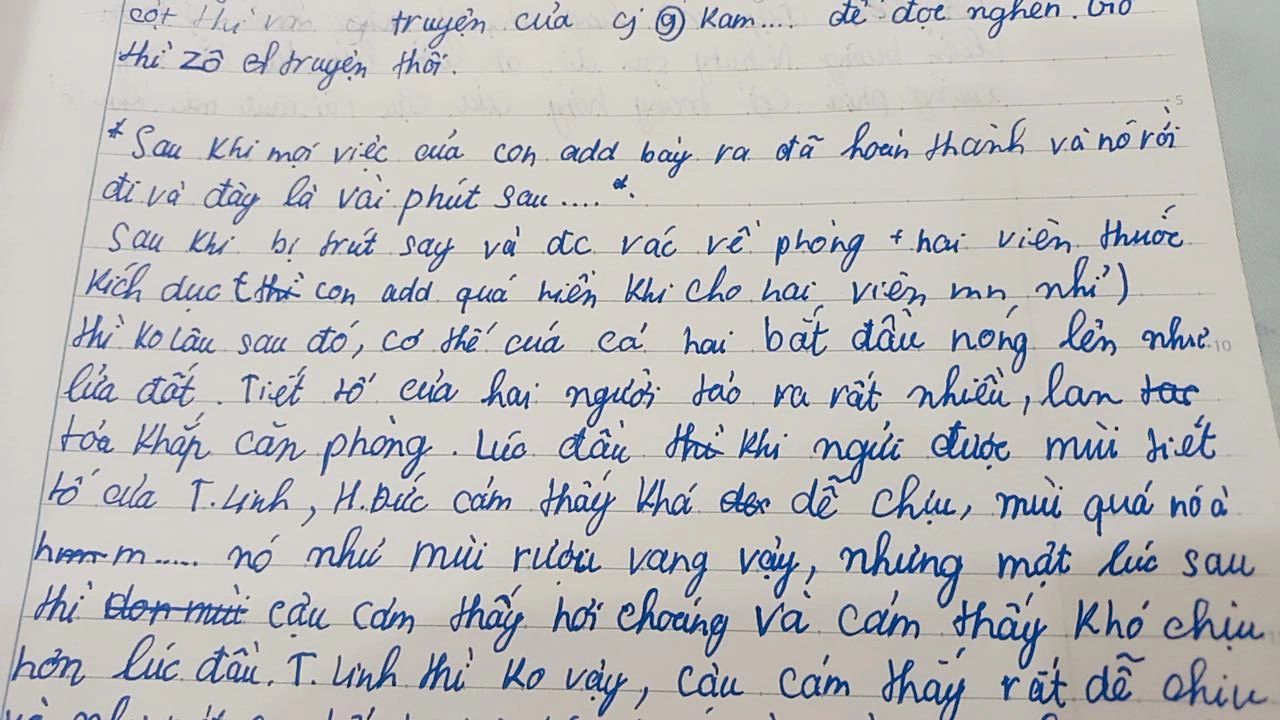 cột thì vào truyện của cj 9 Kam.... để đọc nghen. Giờ
thì zô cđ truyện thôi.
* Sau khi mọi việc của con add bày ra đã hoàn thành và nó rời
đi và đây là vài phút sau.... *.
Sau khi bị trút say và đc vác về phòng + hai viên thuốc
kích dục (thì con add quá hiền khi cho hai viên mn nhỉ)
thì ko lâu sau đó, cơ thể của cả hai bắt đầu nóng lên như
lửa đốt. Tiết tố của hai người tảo ra rất nhiều, lan tac
tỏa khắp căn phòng. Lúc đầu thì khi ngửi được mùi tiết
tố của T.Linh, H.Đức cảm thấy khá dễ chịu, mùi quá nó à
hmm m..... nó như mùi rượu vang vậy, nhưng một lúc sau
thì cậu cảm thấy hơi choáng và cảm thấy khó chịu
hơn lúc đầu. T.Linh thì ko vậy, cậu cảm thấy rất dễ chịu